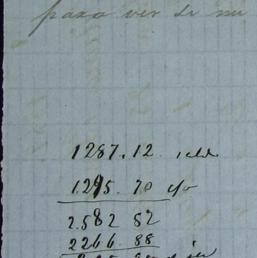 para ver si mi
1287.12
1295.70 c/o
2.582 82
2266.88